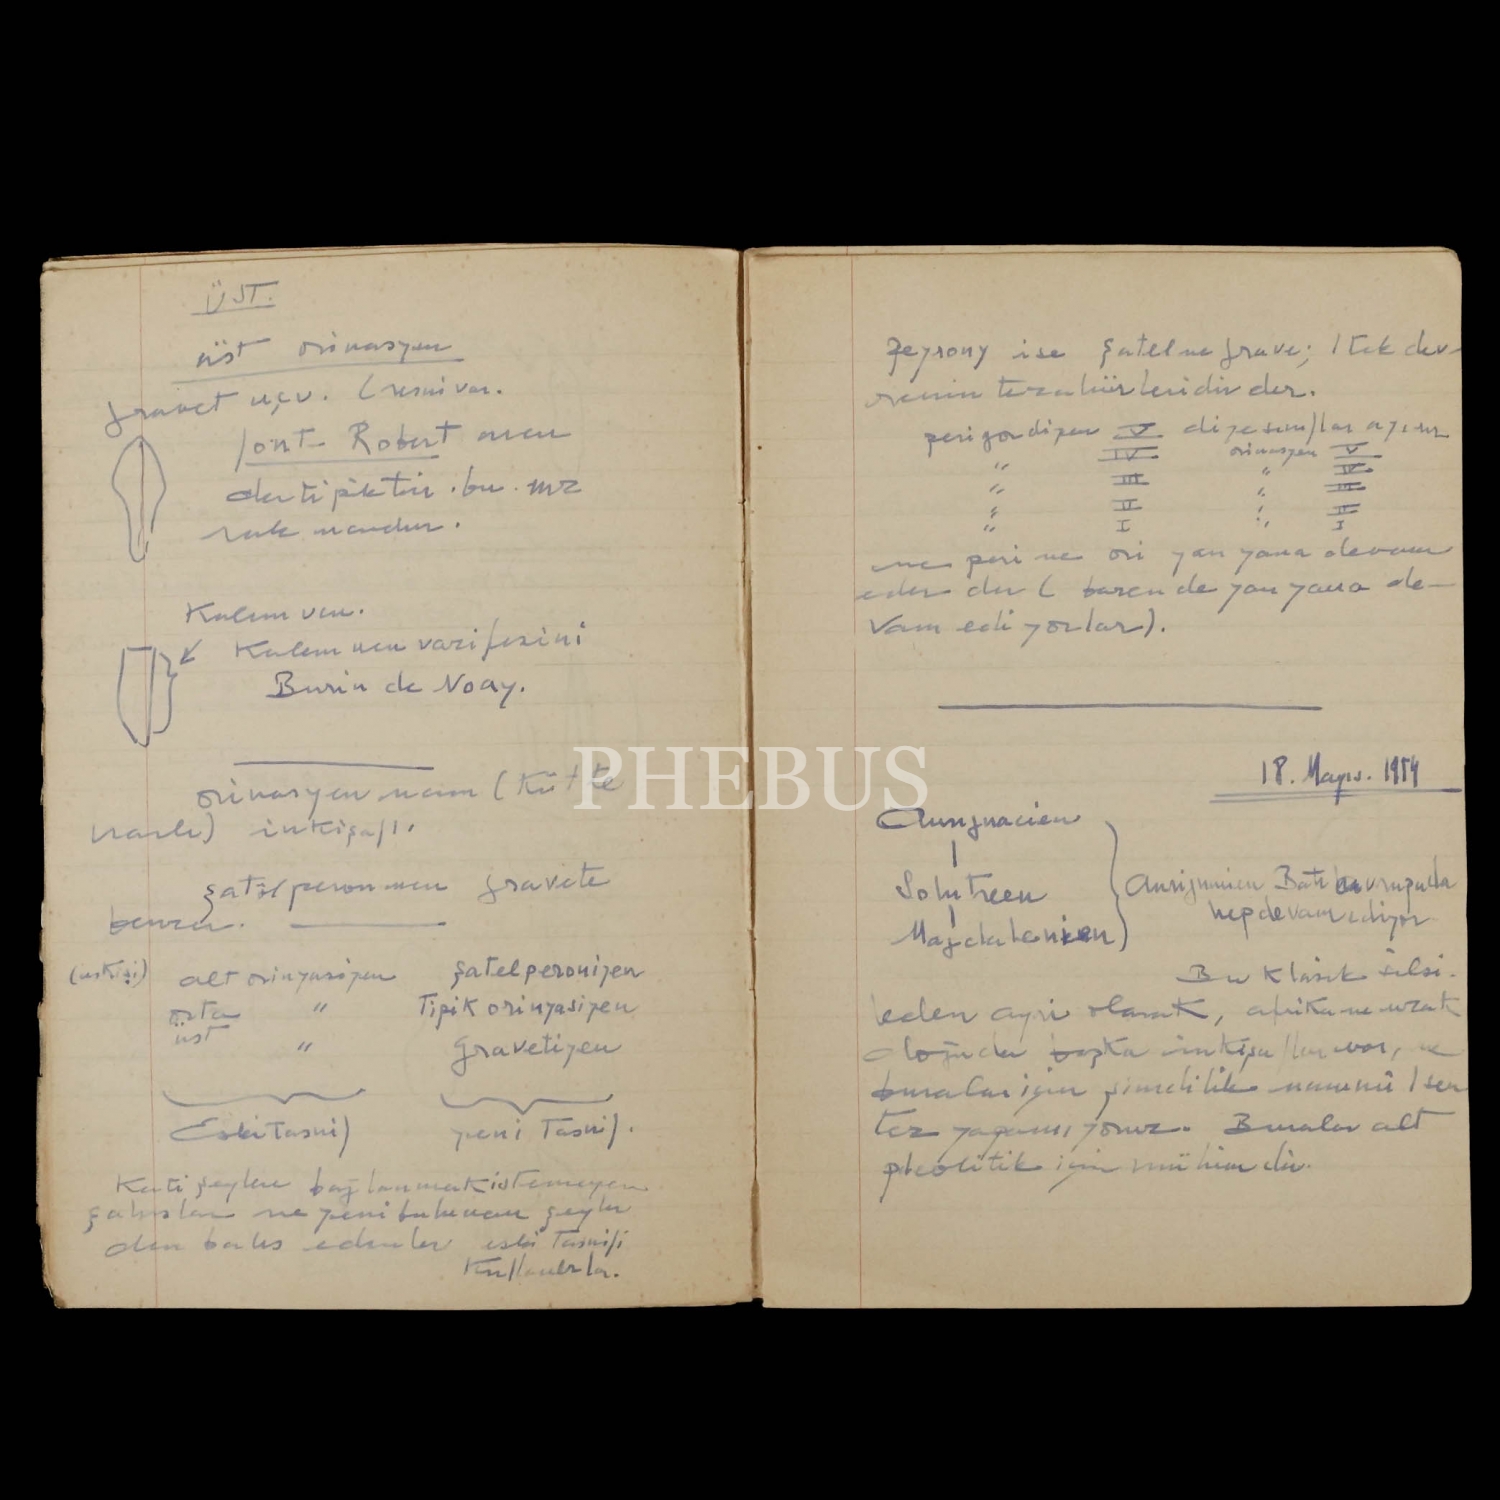 ÜST.
üst orinasyen
gravet ucu. (resmi var.
font-Robert
der tipiktir. bu. mız
rak ucudur.
Kalem ucu.
Kalem ucu vazifesini
Burin de Noay.
orinasyen
inkişafı.
şatelperon gravete
benzer.
alt orinyasiyen şatelperoniyen
orta " Tipik orinyasiyen
üst " Gravetiyen
Eski Tasnif yeni Tasnif.
Kati şeylere bağlanmak istemeyen
şahıslar ve yeni bulunan şeyler
den bahs edenler eski Tasnifi
Kullanırlar.
Peyrony ise şatel ve grave; 1 tek dev-
renin tezahürleridir der.
perigordiyen V diye sınıflar ayırır
IV orinasyen V
" III " IV
" II " III
" I " II
I
ve peri ve ori yan yana devam
eder der ( bazen de yan yana de-
vam ediyorlar).
PHEBUS
18. Mayıs. 1954
Aurignacien
Solutreen
Magdalenien
Aurignacien Batı Avrupada
hep devam ediyor
Bu Klasik silsi-
leden ayrı olarak, afrika ve uzak
doğuda başka inkişaflar var, ve
buralar için şimdilik umumî 1 sen
tez yapamıyoruz. Buralar alt
pleolitik için mühimdir.